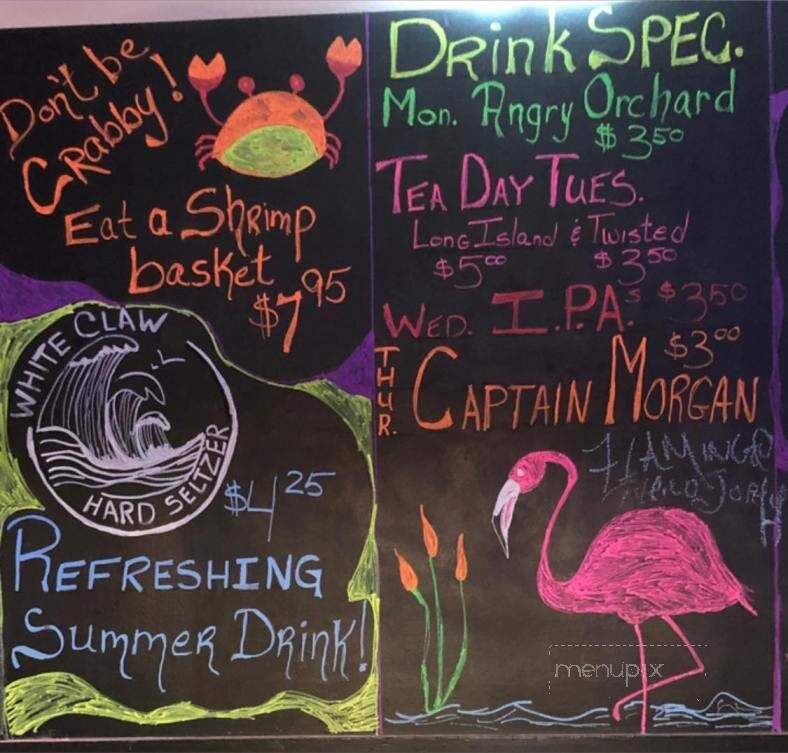 Don't be
Crabby!
Eat a Shrimp
basket
$7.95
WHITE CLAW
HARD SELTZER
$4.25
REFRESHING
Summer Drink!
Drink SPEC.
Mon. Angry Orchard
$3.50
TEA DAY TUES.
Long Island & Twisted
$5.00 $3.50
WED. I.P.A.s $3.50
$3.00
THUR. CAPTAIN MORGAN
FLAMINGO
menupix